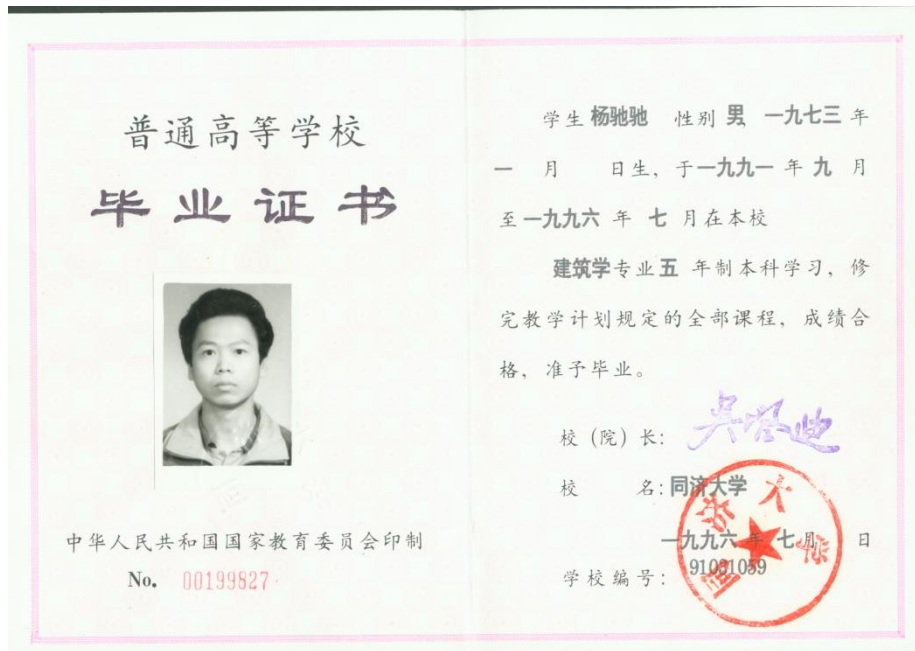 普通高等学校
毕业证书
中华人民共和国国家教育委员会印制
No. 00199827
学生 杨驰驰 性别 男, 一九七三 年
一 月 日生, 于一九九一 年 九 月
至一九九六 年 七 月在本校
建筑学专业五 年制本科学习, 修
完教学计划规定的全部课程, 成绩合
格, 准予毕业。
校 (院) 长: 吴启迪
校 名: 同济大学
一九九六 年 七 月 日
学校编号: 91031059
同济大学